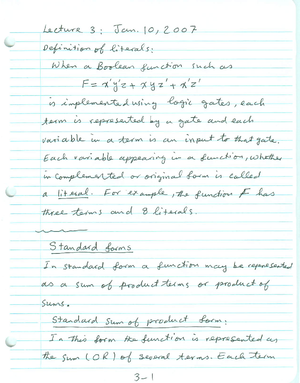 Lecture 3: Jan. 10, 2007
Definition of literals:
When a Boolean function such as
F = x'y'z + x'yz' + x'z'
is implemented using logic gates, each
term is represented by a gate and each
variable in a term is an input to that gate.
Each variable appearing in a function, whether
in complemented or original form is called
a literal. For example, the function F has
three terms and 8 literals.
Standard forms
In standard form a function may be represented
as a sum of product terms or product of
sums.
Standard sum of product form:
In this form the function is represented as
the sum (OR) of several terms. Each term
3-1